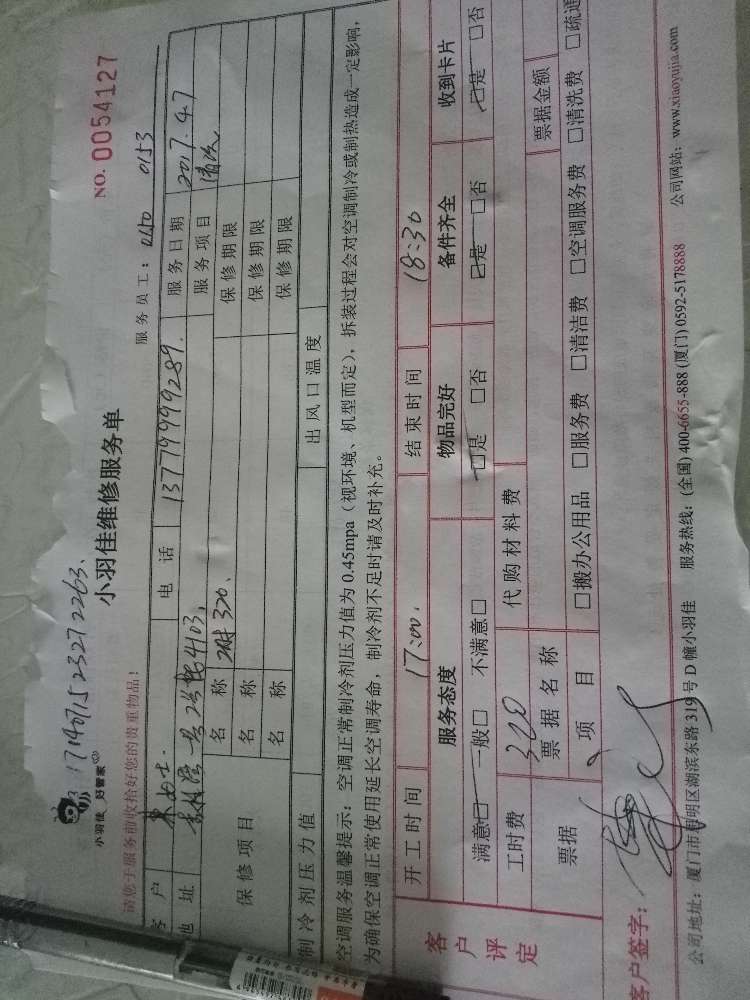 171407152327 2263.
小羽佳 好管家
小羽佳维修服务单
NO. 0054127
请您于服务前收拾好您的贵重物品！
服务员工： 0153
客户 电话 13779999289. 服务日期 2017.4.7
地址 4103. 服务项目 清洗
保修项目 名称 320. 保修期限
名称 保修期限
名称 保修期限
制冷剂压力值 出风口温度
空调服务温馨提示：空调正常制冷剂压力值为 0.45mpa（视环境、机型而定），拆装过程会对空调制冷或制热造成一定影响，
为确保空调正常使用延长空调寿命，制冷剂不足时请及时补充。
客户评定
开工时间 17:00. 结束时间 18:30
服务态度 物品完好 备件齐全 收到卡片
满意□ 一般□ 不满意□ □是 □否 □是 □否 □是 □否
工时费 320 代购材料费
票据 票据名称 票据金额
项目 □搬办公用品 □服务费 □清洁费 □空调服务费 □清洗费 □疏通
客户签字：
公司地址：厦门市思明区湖滨东路 319 号 D 幢小羽佳 服务热线：(全国) 400-6655-888 (厦门) 0592-5178888 公司网站：www.xiaoyujia.com